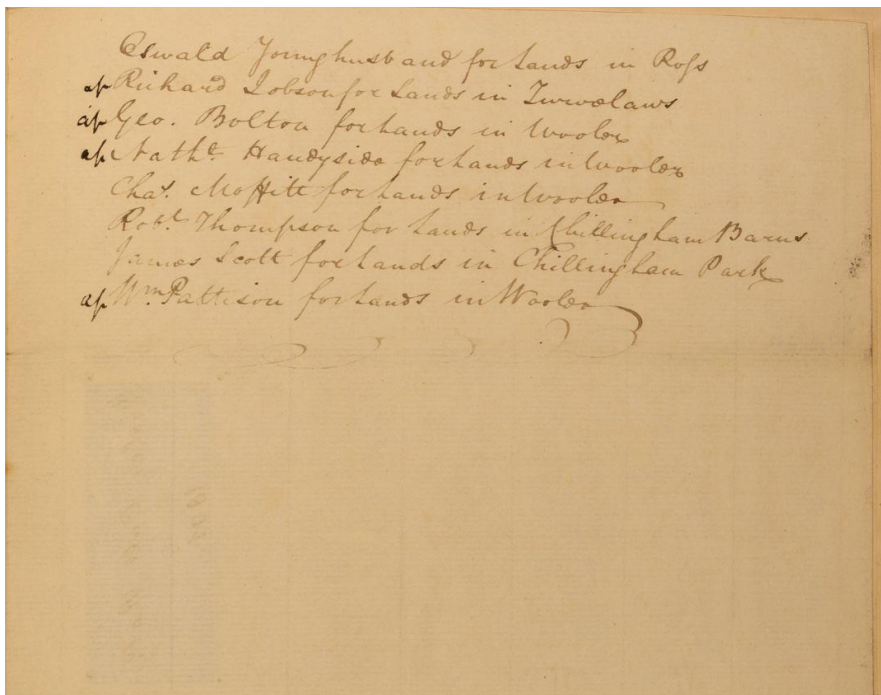 Oswald Younghusband for Lands in Ross
ap Richard Jobson for Lands in Turvelaws
ap Geo. Bolton for Lands in Wooler
ap Nathl. Handyside for Lands in Wooler
Chas. Moffitt for Lands in Wooler
Robt. Thompson for Lands in Chillingham Barns
James Scott for Lands in Chillingham Park
ap Wm. Pattison for Lands in Wooler